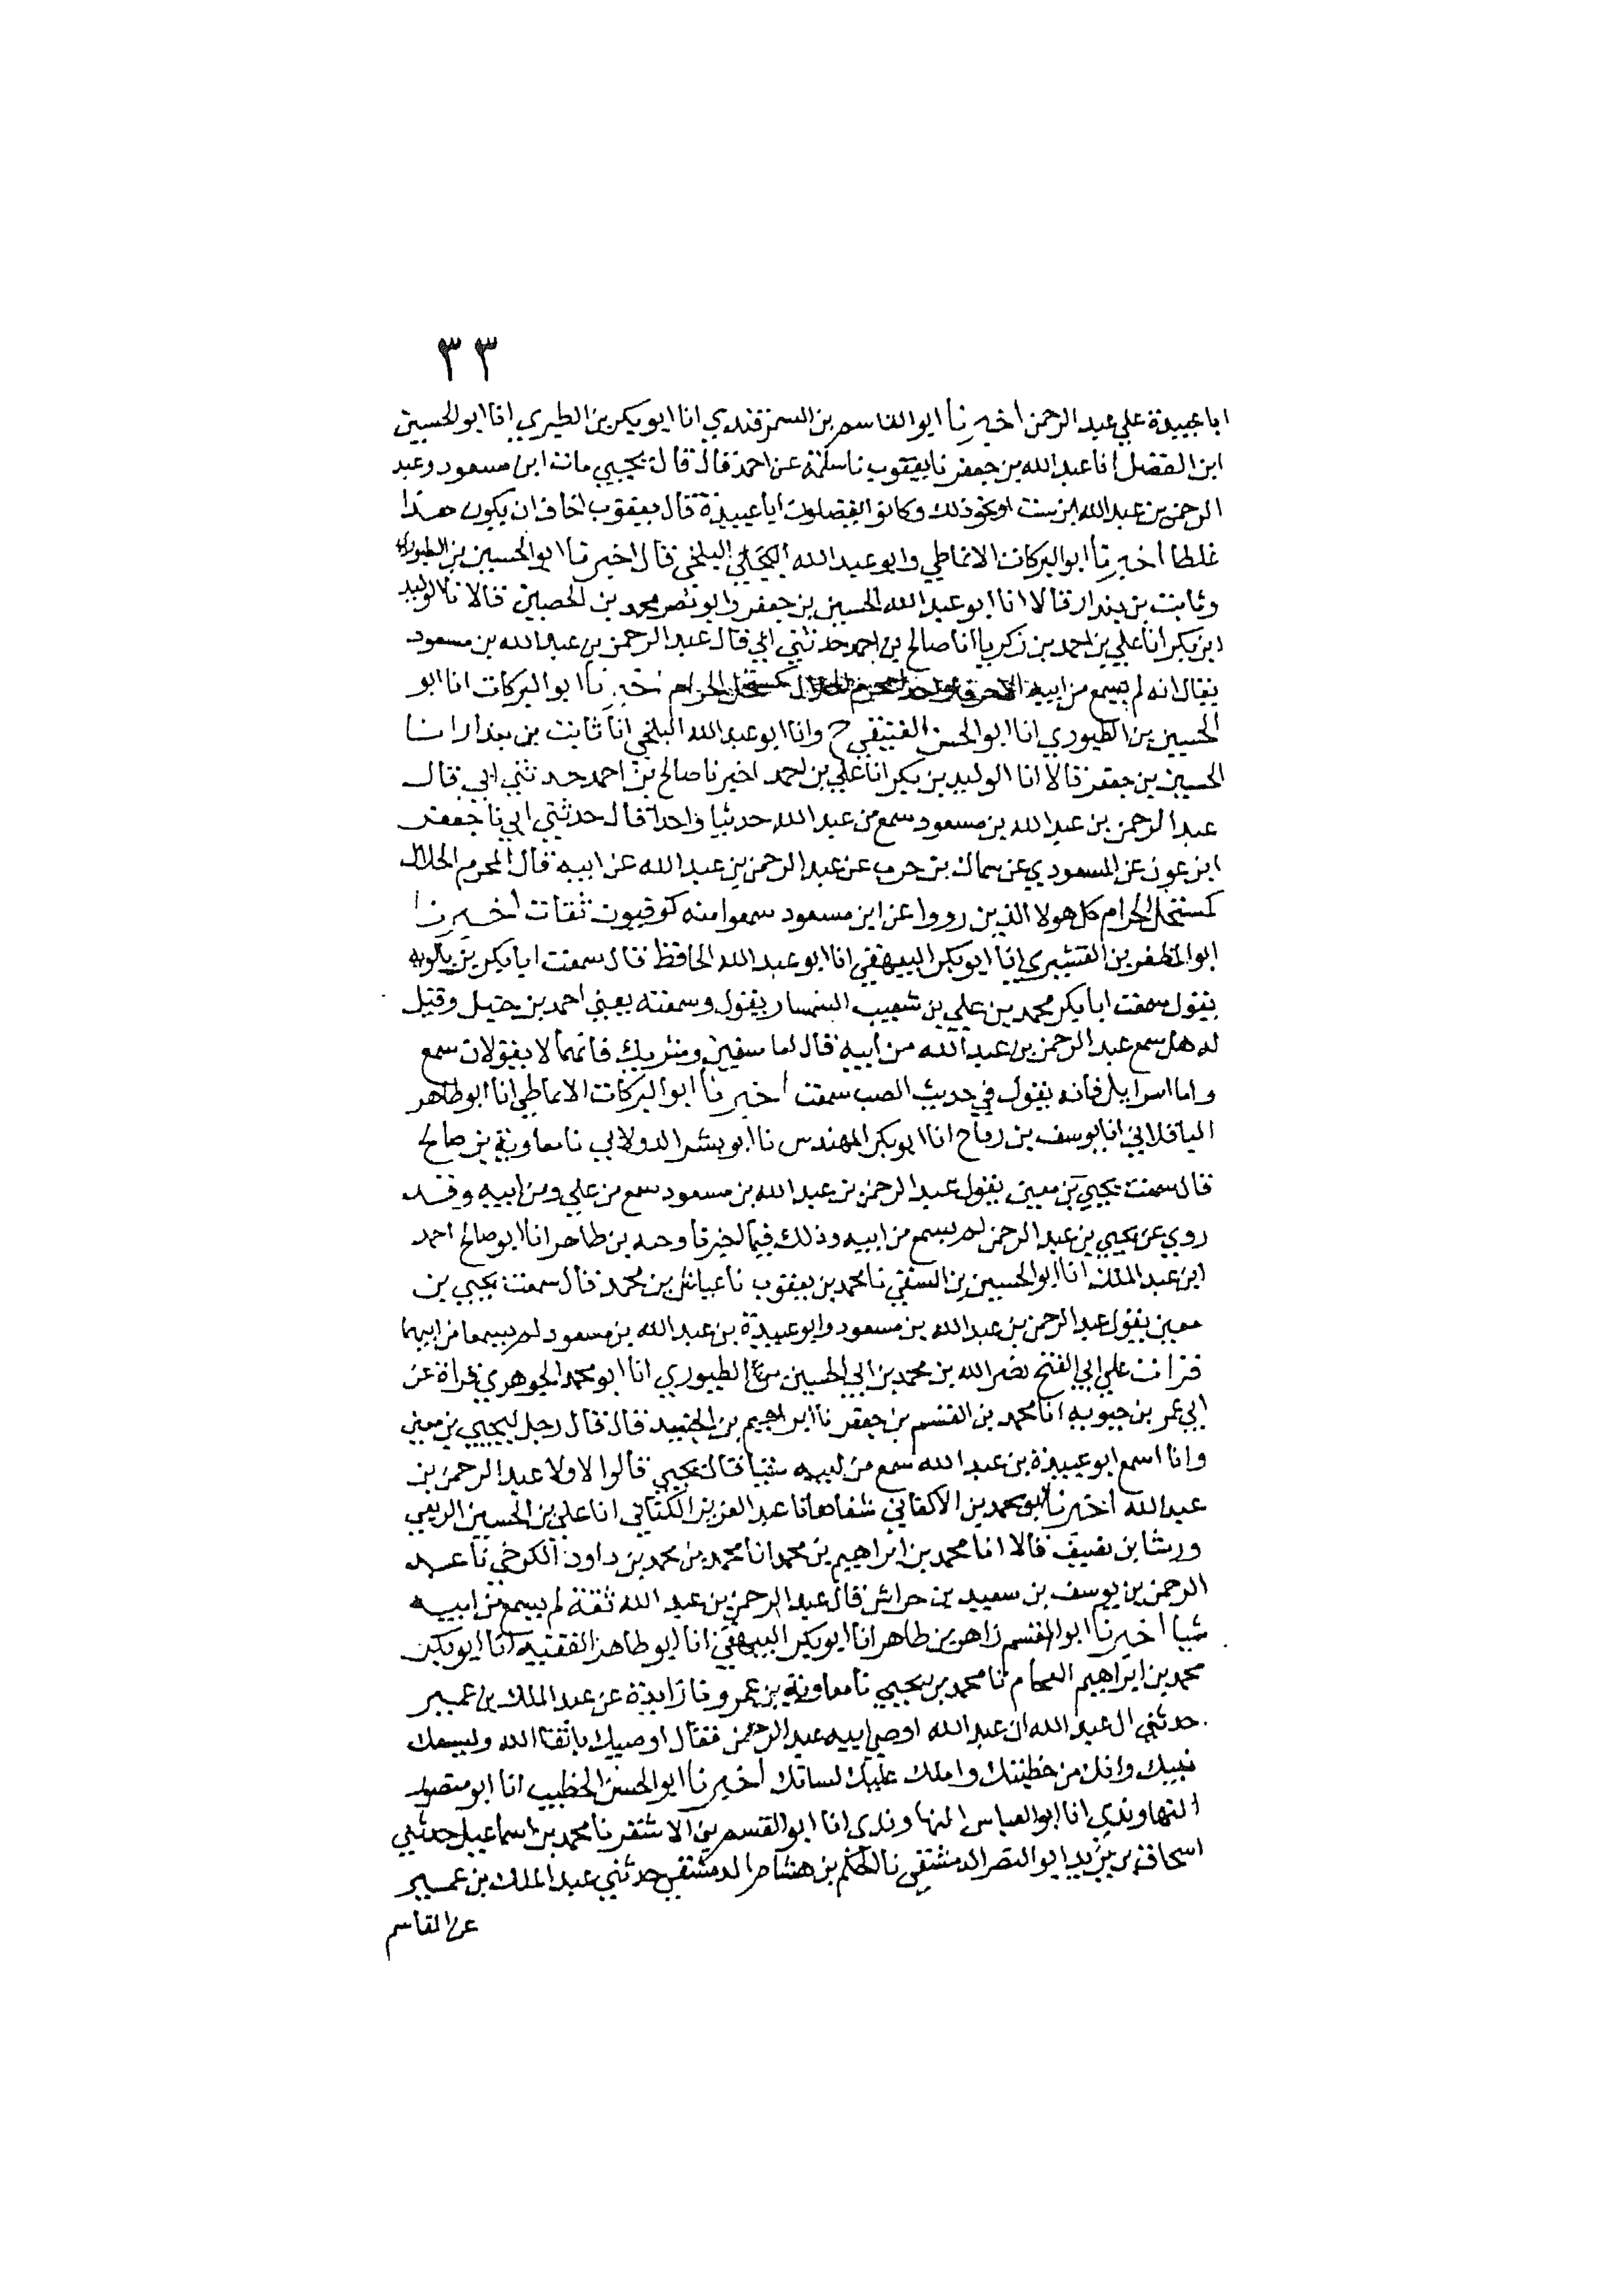 ٣٣
ابا عبيدة علي عبد الرحمن اخبرنا ابو القاسم بن السمرقندي انا ابو بكر بن الطبري انا ابو الحسين
ابن الفضل انا عبد الله بن جعفر نا يعقوب نا سلمة عن احمد قال قال يحيي مات ابن مسعود وعبد
الرحمن بن عبد الله ابن ست او نحو ذلك وكانوا يفضلون ابا عبيدة قال يعقوب اخاف ان يكون هذا
غلطا اخبرنا ابو البركات الانماطي وابو عبد الله البلخي قال اخبرنا ابو الحسين بن الطيوري
وثابت بن بندار قالا انا ابو عبد الله الحسين بن جعفر وابو نصر محمد بن الحصين قالا نا الوليد
ابن بكر انا علي بن احمد بن زكريا انا صالح بن احمد حدثني ابي قال عبد الرحمن بن عبد الله بن مسعود
يقال انه لم يسمع من ابيه الا حرفا واحدا محرم الحلال كمستحل الحرام اخبرنا ابو البركات انا ابو
الحسين بن الطيوري انا ابو الحسن العتيقي ح وانا ابو عبد الله البلخي انا ثابت بن بندار انا
الحسين بن جعفر قالا انا الوليد بن بكر انا علي بن احمد اخبرنا صالح بن احمد حدثني ابي قال
عبد الرحمن بن عبد الله بن مسعود سمع من عبد الله حديثا واحدا قال حدثني ابي نا جعفر
ابن عون عن المسعودي عن سماك بن حرب عن عبد الرحمن بن عبد الله عن ابيه قال المحرم الحلال
كمستحل الحرام كل هولا الذين رووا عن ابن مسعود سمعوا منه كوفيون ثقات اخبرنا
ابو المظفر بن القشيري انا ابو بكر البيهقي انا ابو عبد الله الحافظ قال سمعت ابا بكر بن بالويه
يقول سمعت ابا بكر محمد بن علي بن شعيب السمسار يقول وسمعته يعني احمد بن حنبل وقيل
له هل سمع عبد الرحمن بن عبد الله من ابيه قال اما سفين وشريك فانهما لا يقولان سمع
واما اسرايل فانه يقول في حديث الضب سمعت اخبرنا ابو البركات الانماطي انا ابو طاهر
الباقلاني انا يوسف بن رباح انا ابو بكر المهندس نا ابو بشر الدولابي نا معاوية بن صالح
قال سمعت يحيي بن معين يقول عبد الرحمن بن عبد الله بن مسعود سمع من علي ومن ابيه وقد
روي عن يحيي بن عبد الرحمن لم يسمع من ابيه وذلك فيما اخبرنا وجيه بن طاهر انا ابو صالح احمد
ابن عبد الملك انا ابو الحسين بن السقي نا محمد بن يعقوب نا عباس بن محمد قال سمعت يحيي بن
معين يقول عبد الرحمن بن عبد الله بن مسعود وابو عبيدة بن عبد الله بن مسعود لم يسمعا من ابيهما
قرات علي ابي الفتح نصر الله بن محمد بن ابي الحسين بن الطيوري انا ابو محمد الجوهري قراة عن
ابي عمر بن حيويه انا محمد بن القسم بن جعفر نا ابراهيم بن الجنيد قال قال رجل ليحيي بن معين
وانا اسمع ابو عبيدة بن عبد الله سمع من ابيه شيا قال يحيي قالوا لا ولا عبد الرحمن بن
عبد الله اخبرنا ابو محمد بن الاكفاني شفاها نا عبد العزيز الكتاني انا علي بن الحسين الربعي
ورشا بن نضيف قالا انا محمد بن ابراهيم بن محمد انا محمد بن محمد بن داود الكرخي نا عبد
الرحمن بن يوسف بن سعيد بن خراش قال عبد الرحمن بن عبد الله ثقة لم يسمع من ابيه
شيا اخبرنا ابو القسم زاهر بن طاهر انا ابو بكر البيهقي انا ابو طاهر الفقيه انا ابو بكر
محمد بن ابراهيم الفحام نا محمد بن يحيي نا معاوية بن عمرو نا زايدة عن عبد الملك بن عمير
حدثني ال عبد الله ان عبد الله اوصي ابنه عبد الرحمن فقال اوصيك باتقا الله وليسعك
بيتك وابك من خطيتك واملك عليك لسانك اخبرنا ابو الحسن الخطيب انا ابو منصور
النهاوندي انا ابو العباس النهاوندي انا ابو القسم بن الاشقر نا محمد بن اسماعيل حدثني
اسحاق بن يزيد ابو النضر الدمشقي نا الحكم بن هشام الدمشقي حدثني عبد الملك بن عمير
عن القاسم